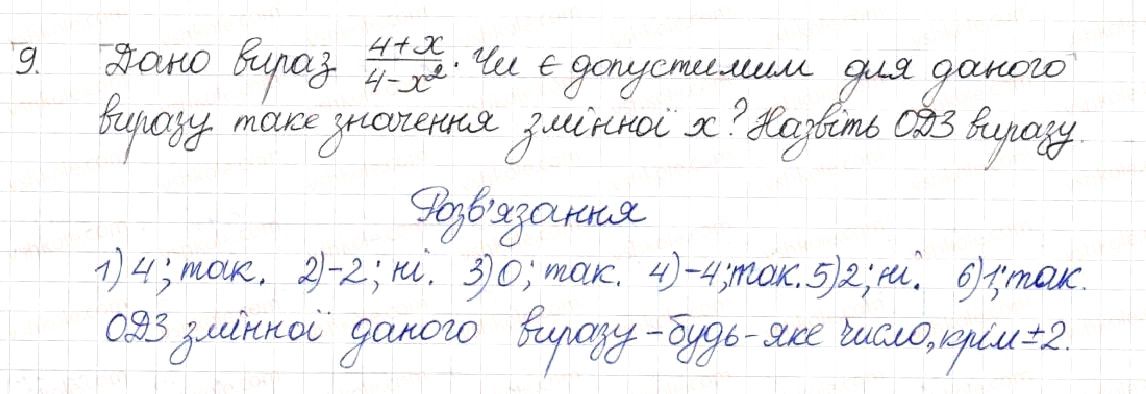 9. Дано вираз (4+x)/(4-x²). Чи є допустимим для даного
виразу таке значення змінної x? Назвіть ОДЗ виразу.
Розв'язання
1) 4; так. 2) -2; ні. 3) 0; так. 4) -4; так. 5) 2; ні. 6) 1; так.
ОДЗ змінної даного виразу - будь-яке число, крім ±2.